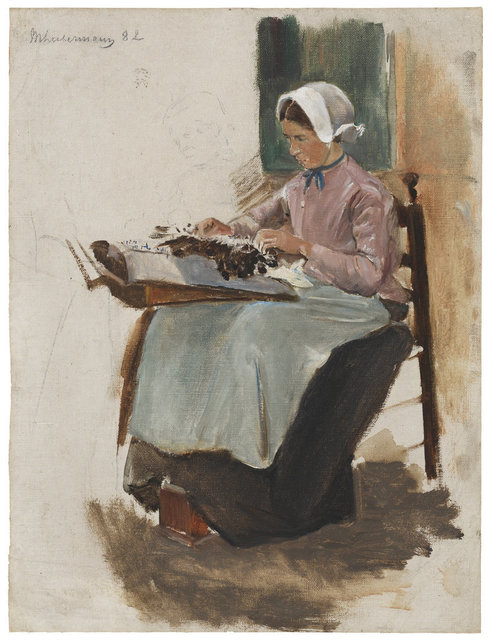 MLiebermann 82